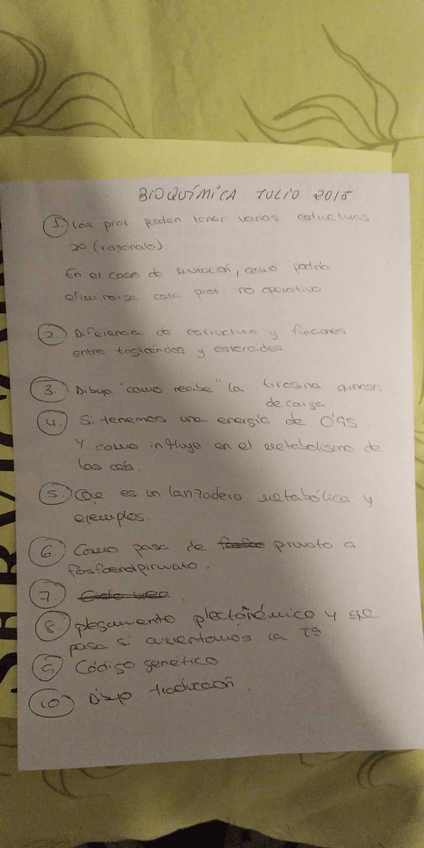 BIOQUÍMICA JULIO 2015
1. Las prot pueden tener varias estructuras
2º (razónalo).
En el caso de mutación, como podría
eliminarse esta prot. no operativa
2. Diferencia de estructura y funciones
entre triglicéridos y esteroides
3. Dibujo "como recibe" la tirosina quinasa
de carga.
4. Si tenemos una energía de 0'95
Y como influye en el metabolismo de
las cels.
5. Que es un lanzadera metabólica y
ejemplos.
6 Como pasa de piruvato a
fosfoenolpiruvato.
7. Ciclo urea
8 plegamiento plectonémico y que
pasa si aumentamos la Tª
9 Código genético
10) Dibujo traducción.